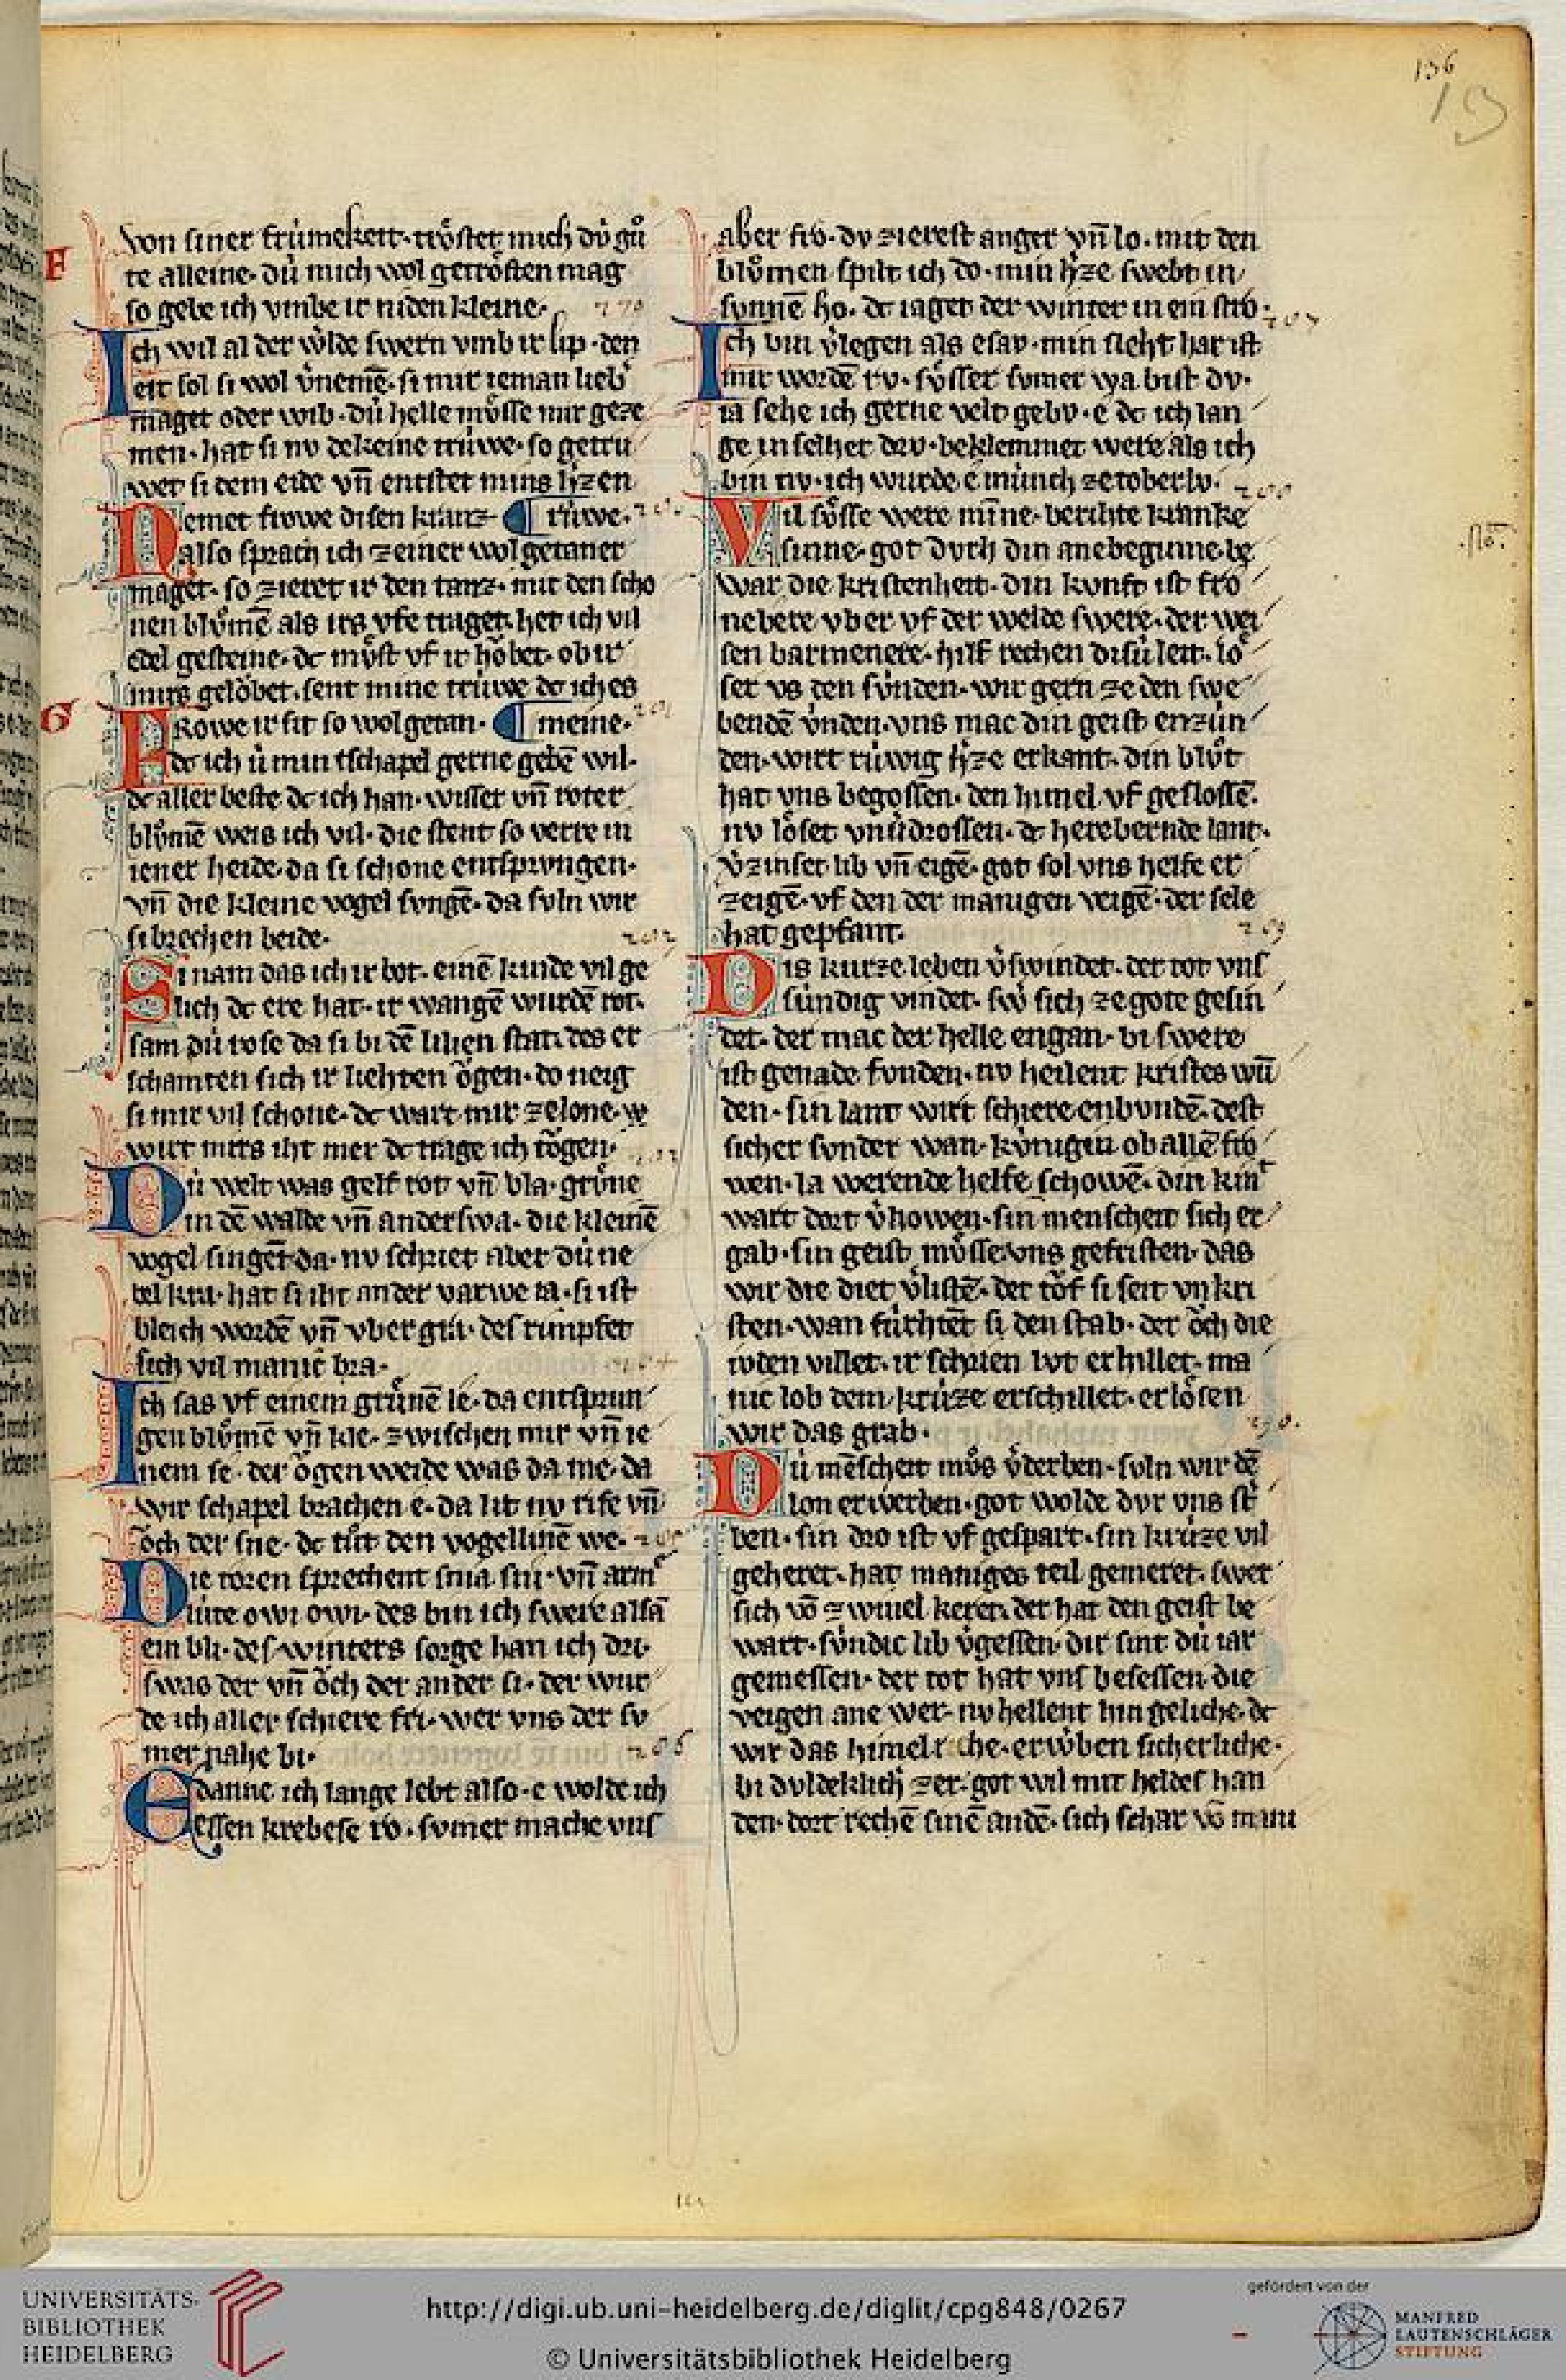 136
13
von siner frúmekeit. trôstet mich dú gů
te alleine. dú mich wol getrôsten mag
so gebe ich vmbe ir niden kleine.
Ich wil al der wͤlde swern vmb ir lip. den
eit sol si wol v̓nemē. si mir ieman lieb̓
maget oder wib. dú helle mͤsse mir geze
men. hat si nv dekeine trúwe. so getrv
wet si dem eide vn̄ entstet mins h̓zen
Nemet frowe disen kranz ¶ rúwe.
also sprach ich zeiner wol getaner
maget. so zieret ir den tanz. mit den scho
nen blůmē als irs vfe traget. het ich vil
edel gesteine. dc mͤst vf ir hôbet. ob ir
mirs gelôbet. sent mine trúwe dc ich es
Frowe ir sit so wol getan. ¶ meine.
dc ich ú min tschapel gerne gebē wil.
dc aller beste dc ich han. wisser vn̄ roter
blůmē weis ich vil. die stent so verre in
iener heide. da si schone entsprvngen.
vn̄ die kleine vogel svngē. da svln wir
si brechen beide.
Si nam das ich ir bot. einē kinde vil ge
lich dc ere hat. ir wangē wurdē rot.
sam dú rose da si bi dē lilien stat. des er
schamten sich ir liehten ôgen. do neig
si mir vil schone. dc wart mir zelone. w
wirt mirs iht mer dc trage ich tôgen.
Dú welt was gelf rot vn̄ bla. grͤne
in dē walde vn̄ anderswa. die kleinē
vogel singēt da. nv schriet aber dú ne
bel kra. hat si iht ander varwe ia. si ist
bleich wordē vn̄ vber gra. des rimpfet
sich vil manic bra.
Ich sas vf einem grͤnē le. da entsprun
gen blůmē vn̄ kle. zwischen mir vn̄ ie
nem se. der ôgen weide was da me. da
wir schapel brachen e. da lit nv rife vn̄
ôch der sne. dc tůt den vogellinē we.
Die toren sprechent snia sni. vn̄ arm̓
lúte owi owi. des bin ich swere alsā
ein bli. des winters sorge han ich dri.
swas der vn̄ ôch der ander si. der wur
de ich aller schiere fri. wer vns der sv
mer nahe bi.
E danne ich lange lebt also. e wolde ich
essen krebese ro. svmer mache vns
aber fro. dv zierest anger vn̄ lo. mit den
blůmen spilt ich do. min h̓ze swebt in
svnnē ho. dc iaget der winter in ein stro.
Ich bin v̓legen als esav. min sleht har ist
mir wordē rv. sͤsser svmer wa bist dv.
ia sehe ich gerne velt gebv. e dc ich lan
ge in selher drv. beklemmet were als ich
bin nv. ich wurde e múnch ze toberlv.
Vil sͤsse were mīne. berihte kranke
sinne. got dvrh din anebeginne. be
war die kristenheit. din kvnft ist fro
nebere vber vf der welde swere. der wei
sen barmenere. hilf rechen disú leit. lo
ser vs den súnden. wir gern ze den swe
bendē v́nden. vns mac din geist enzún
den. wirt rúwig h̓ze erkant. din blůt
hat vns begossen. den himel vf geslossē.
nv lôset vnv̓drossen. dc herebernde lant.
v̓zinset lib vn̄ eigē. got sol vns helfe er
zeigē. vf den der manigen veigē. der sele
hat gepfant.
Dis kurze leben v̓swindet. der tot vns
súndig vindet. sw̓ sich ze gote gesin
det. der mac der helle engan. bi swere
ist genade fvnden. nv heilent kristes wū
den. sin lant wirt schiere enbvndē. dest
sicher svnder wan. kúnigin ob allē fro
wen. la werende helfe schowē. din kint
wart dort v̓howen. sin menscheit sich er
gab. sin geist mͤsse vns gefristen. das
wir die diet v̓listē. der tôf si seit vnkri
sten. wan fúrhtēt si den stab. der ôch die
ivden villet. ir schrien lvt erhillet. ma
nic lob dem krúze erschillet. erlôsen
wir das grab.
Dú mēscheit můs v̓derben. svln wir dē
lon erwerben. got wolde dvr vns st̓
ben. sin dro ist vf gespart. sin krúze vil
geheret. hat maniges teil gemeret. swer
sich vō zwivel keret. der hat den geist be
wart. súndic lib v̓gessen. dir sint dú iar
gemessen. der tot hat vns besessen. die
veigen ane wer. nv hellent hin geliche. dc
wir das himelriche. erwͤben sicherliche.
bi dvldeklich zer. got wil mit heldes han
den. dort rechē sinē andē. sich schar vō mani
F
G
UNIVERSITÄTS-
BIBLIOTHEK
HEIDELBERG
http://digi.ub.uni-heidelberg.de/diglit/cpg848/0267
© Universitätsbibliothek Heidelberg
gefördert von der
MANFRED
LAUTENSCHLÄGER
STIFTUNG